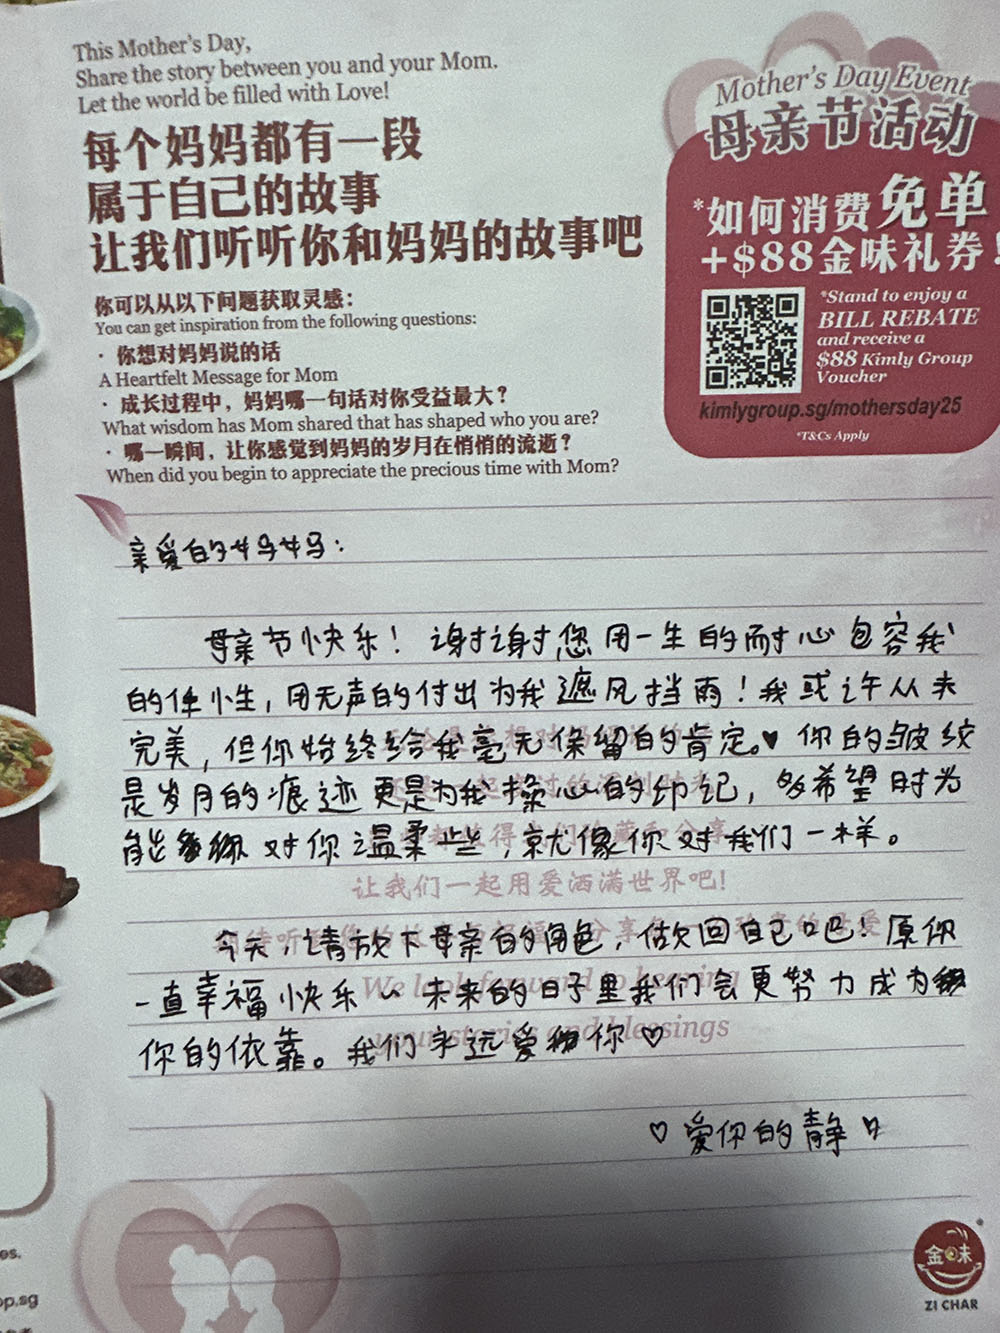 This Mother's Day,
Share the story between you and your Mom.
Let the world be filled with Love!
每个妈妈都有一段
属于自己的故事
让我们听听你和妈妈的故事吧
你可以从以下问题获取灵感：
You can get inspiration from the following questions:
· 你想对妈妈说的话
A Heartfelt Message for Mom
· 成长过程中，妈妈哪一句话对你受益最大？
What wisdom has Mom shared that has shaped who you are?
· 哪一瞬间，让你感觉到妈妈的岁月在悄悄的流逝？
When did you begin to appreciate the precious time with Mom?
Mother's Day Event
母亲节活动
*如何消费免单
+$88金味礼券!
*Stand to enjoy a
BILL REBATE
and receive a
$88 Kimly Group
Voucher
kimlygroup.sg/mothersday25
*T&Cs Apply
亲爱的妈妈：
母亲节快乐！谢谢您用一生的耐心包容我
的任性，用无声的付出为我遮风挡雨！我或许从未
完美，但你始终给我毫无保留的肯定。♥ 你的皱纹
是岁月的痕迹更是为我操心的印记，多希望时为
能 对你温柔些，就像你对我们一样。
让我们一起用爱洒满世界吧！
今天，请放下母亲的角色，做回自己吧！愿你
一直幸福快乐～未来的日子里我们会更努力成为
你的依靠。我们永远爱你♡
We look forward to hearing
your stories and blessings
♡ 爱你的静 ♡
金味
ZI CHAR
es.
op.sg